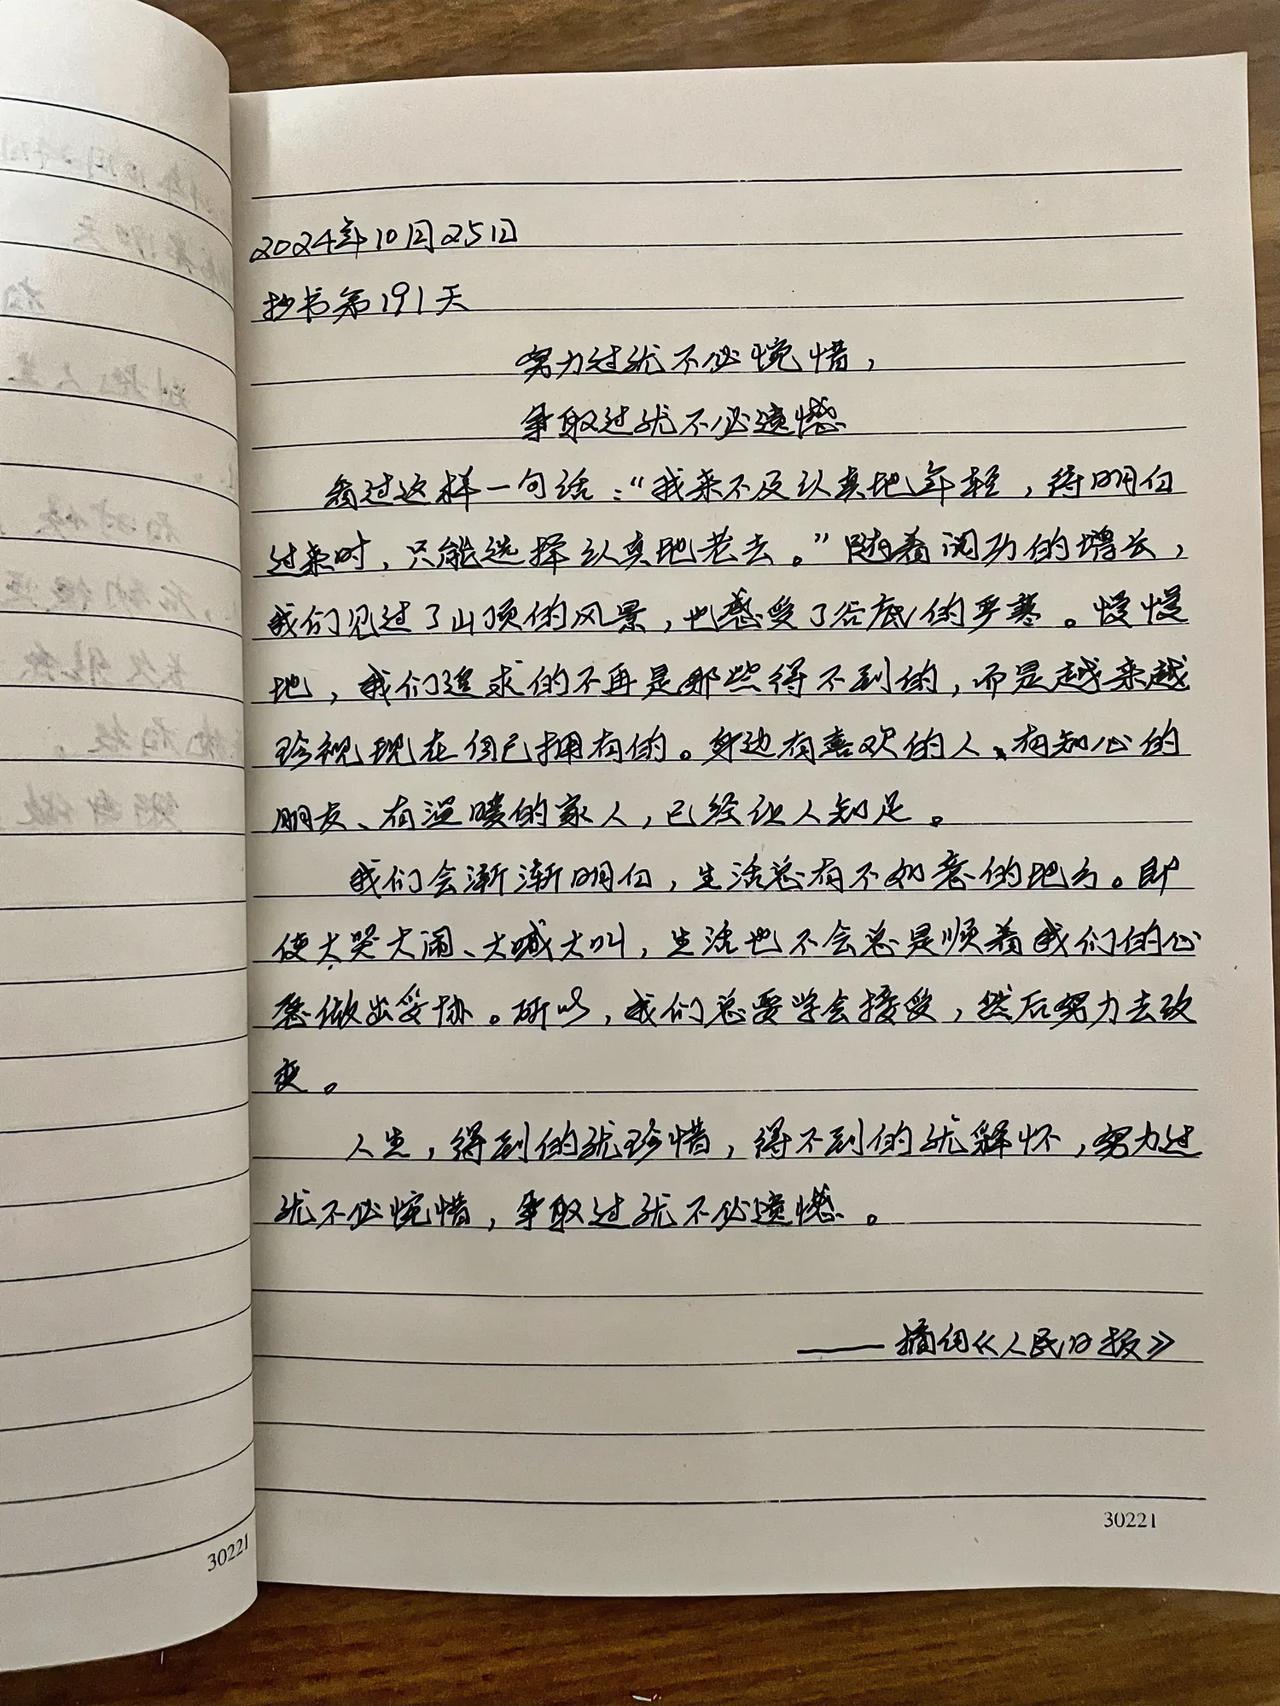 2024年10月25日
抄书第191天
努力过就不必惋惜，
争取过就不必遗憾
看过这样一句话：“我来不及认真地年轻，待明白
过来时，只能选择认真地老去。”随着阅历的增长，
我们见过了山顶的风景，也感受了谷底的严寒。慢慢
地，我们追求的不再是那些得不到的，而是越来越
珍视现在自己拥有的。身边有喜欢的人、有知心的
朋友、有温暖的家人，已经让人知足。
我们会渐渐明白，生活总有不如意的地方。即
使大哭大闹、大喊大叫，生活也不会总是顺着我们的心
意做出妥协。所以，我们总要学会接受，然后努力去改
变。
人生，得到的就珍惜，得不到的就释怀，努力过
就不必惋惜，争取过就不必遗憾。
——摘自《人民日报》
30221
30221